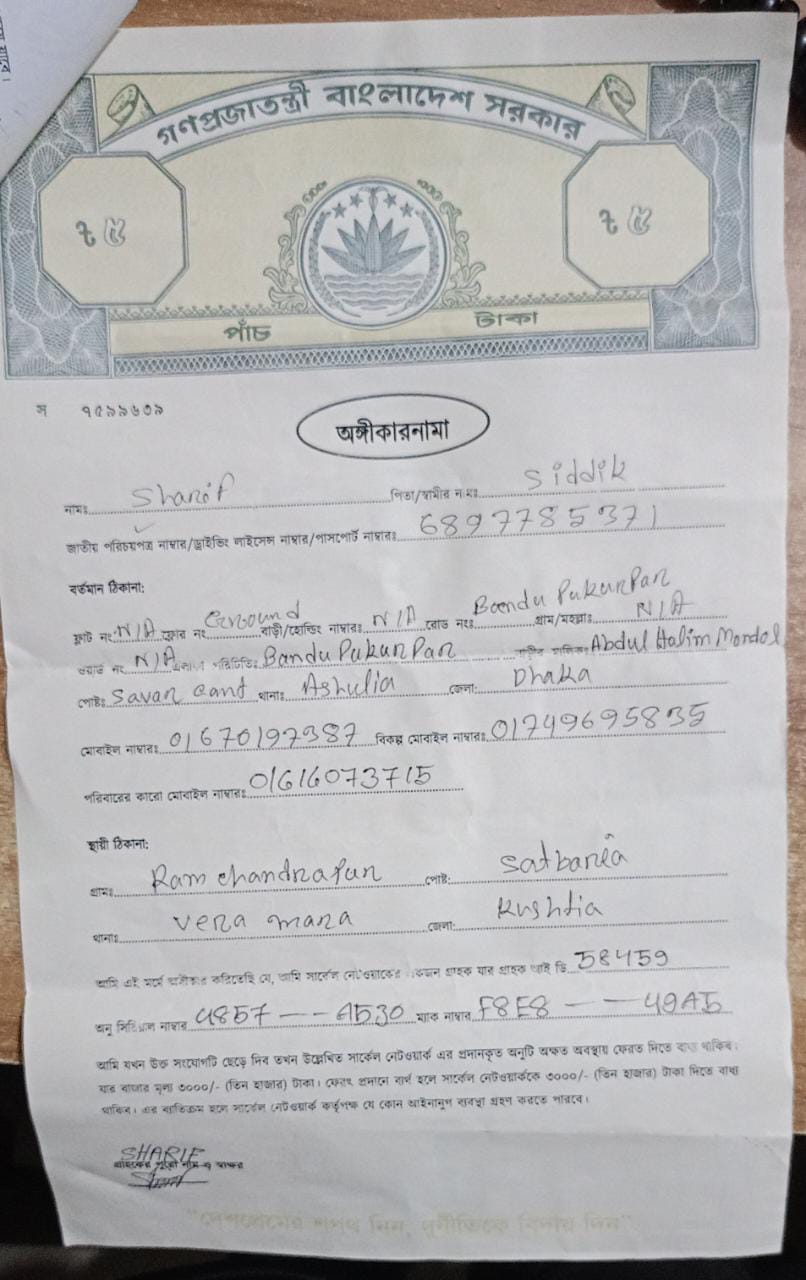 গণপ্রজাতন্ত্রী বাংলাদেশ সরকার
৳ ৫ ৳ ৫
পাঁচ টাকা
স ৭৫৯৯৬৩৯
অঙ্গীকারনামা
নামঃ Sharif পিতা/স্বামীর নামঃ Siddik
জাতীয় পরিচয়পত্র নাম্বার/ড্রাইভিং লাইসেন্স নাম্বার/পাসপোর্ট নাম্বারঃ 6897785371
বর্তমান ঠিকানা:
ফ্লাট নং N/A ফ্লোর নং Ground বাড়ী/হোল্ডিং নাম্বারঃ N/A রোড নংঃ Bandu PukurPar গ্রাম/মহল্লাঃ N/A
ওয়ার্ড নং N/A এলাকা পরিচিতিঃ Bandu PukurPar বাড়ীর মালিকঃ Abdul Halim Mondol
পোষ্টঃ Savar cant থানাঃ Ashulia জেলা: Dhaka
মোবাইল নাম্বারঃ 01670197387 বিকল্প মোবাইল নাম্বারঃ 01749695835
পরিবারের কারো মোবাইল নাম্বারঃ 01616073715
স্থায়ী ঠিকানা:
গ্রামঃ Ram chandrapur পোষ্ট: Satbaria
থানাঃ Vera mara জেলা: Kushtia
আমি এই মর্মে অঙ্গীকার করিতেছি যে, আমি সার্কেল নেটওয়ার্কের একজন গ্রাহক যার গ্রাহক আই ডি 58459
অনু সিরিয়াল নাম্বার 4857 -- A530 ম্যাক নাম্বার F8E8 -- 49A5
আমি যখন উক্ত সংযোগটি ছেড়ে দিব তখন উল্লেখিত সার্কেল নেটওয়ার্ক এর প্রদানকৃত অনুটি অক্ষত অবস্থায় ফেরত দিতে বাধ্য থাকিব।
যার বাজার মূল্য ৩০০০/- (তিন হাজার) টাকা। ফেরৎ প্রদানে ব্যর্থ হলে সার্কেল নেটওয়ার্ককে ৩০০০/- (তিন হাজার) টাকা দিতে বাধ্য
থাকিব। এর ব্যতিক্রম হলে সার্কেল নেটওয়ার্ক কর্তৃপক্ষ যে কোন আইনানুগ ব্যবস্থা গ্রহণ করতে পারবে।
SHARIF
গ্রাহকের পুরো নাম ও স্বাক্ষর
"দেশপ্রেমের শপথ নিন, দুর্নীতিকে বিদায় দিন"